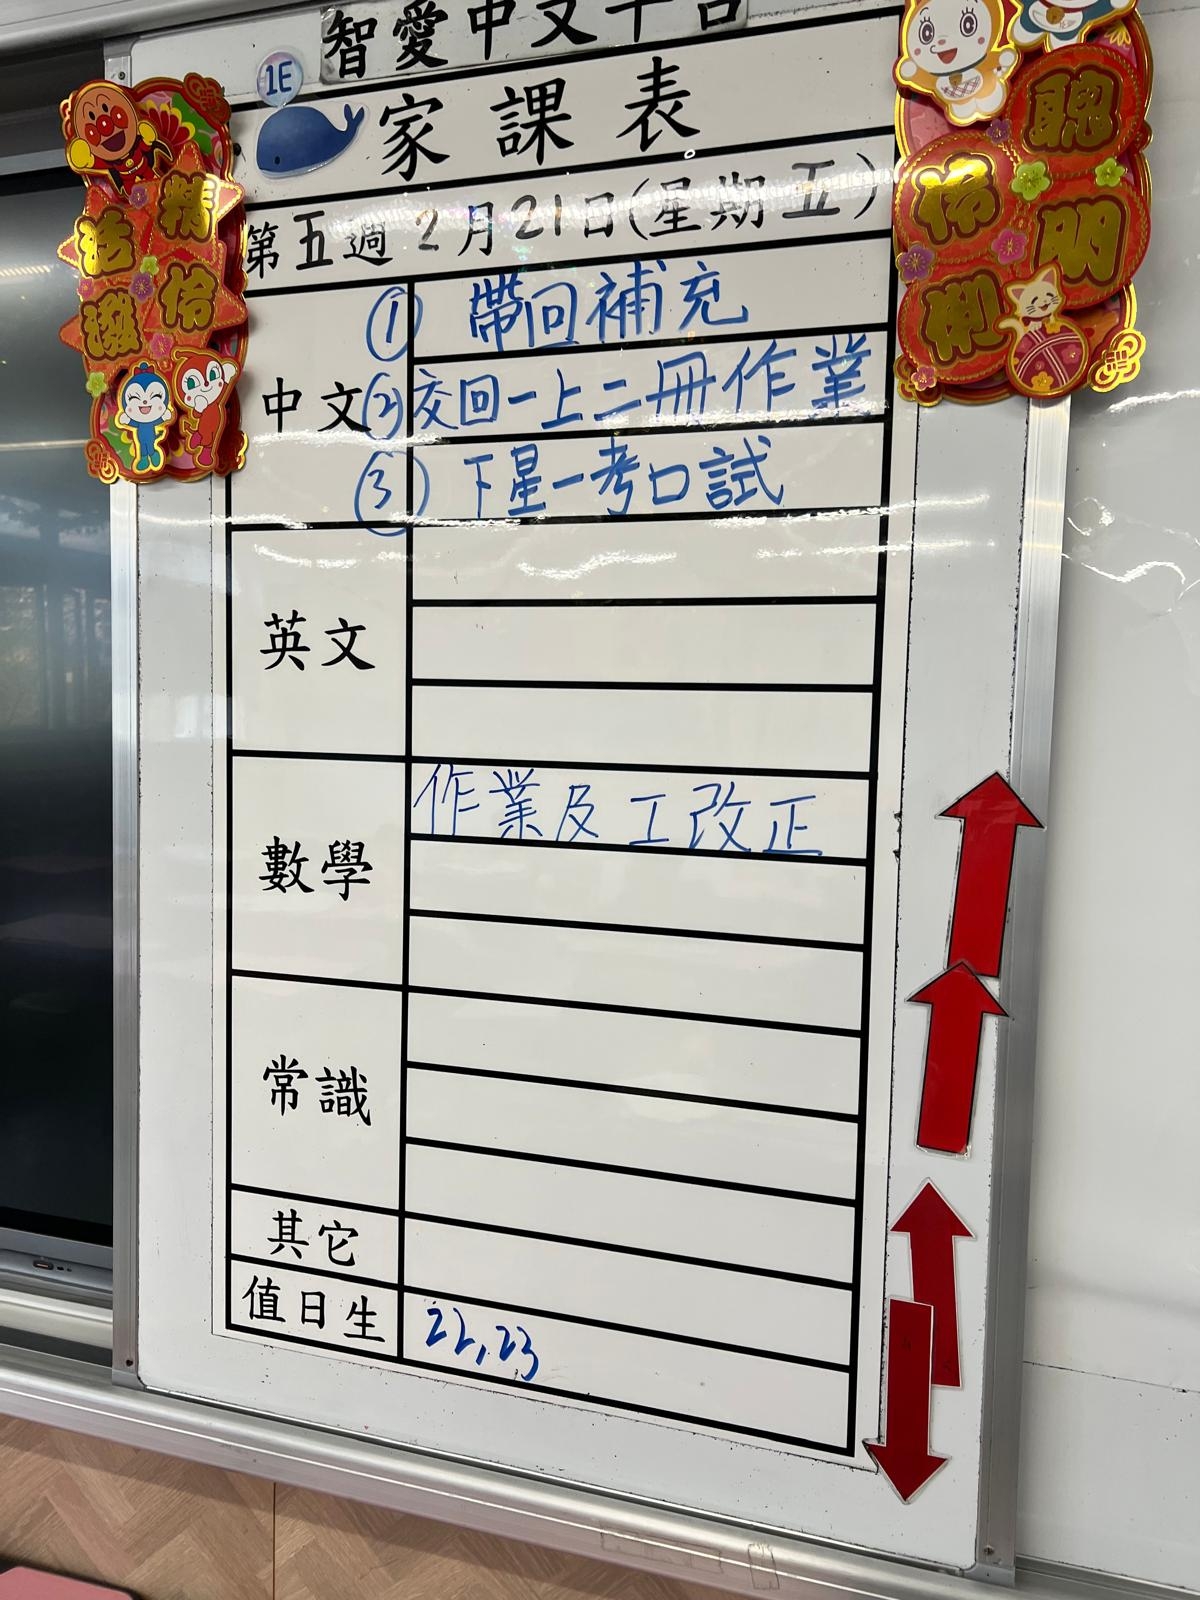 智愛中文平台
1E
家課表
第五週 2月21日(星期五)
中文
① 帶回補充
② 交回一上二冊作業
③ 下星一考口試
英文
數學
作業及工改正
常識
其它
值日生
22,23
精伶
活潑
聰明
伶俐